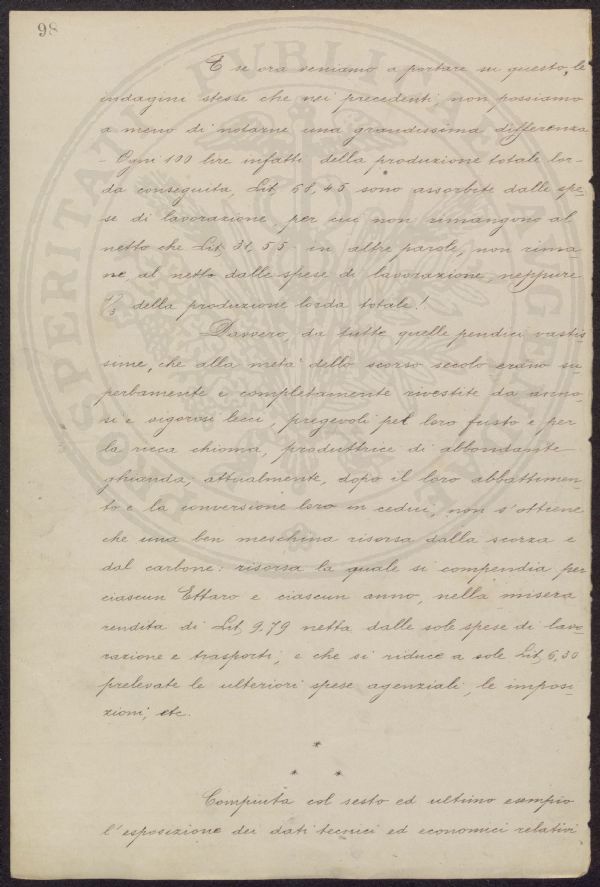 98
E se ora veniamo a portare su questo, le
indagini stesse che nei precedenti, non possiamo
a meno di notarne una grandissima differenza
- Ogni 100 lire infatti della produzione totale lor-
da conseguita, Lit. 68,45 sono assorbite dalle spe-
se di lavorazione per cui non rimangono al
netto che Lit. 31,55 - in altre parole, non rima-
ne al netto dalle spese di lavorazione, neppure
1/3 della produzione lorda totale!
Davvero, da tutte quelle pendici vastis
sime, che alla metà dello scorso secolo erano su-
perbamente e completamente rivestite da anno-
si e vigorosi lecci, pregevoli pel loro fusto e per
la ricca chioma, produttrice di abbondante
ghianda, attualmente, dopo il loro abbattimen-
to e la conversione loro in cedui, non s'ottiene
che una ben meschina risorsa dalla scorza e
dal carbone: risorsa la quale si compendia per
ciascun Ettaro e ciascun anno, nella misera
rendita di Lit. 9.79 netta dalle sole spese di lavo-
razione e trasporti; e che si riduce a sole Lit. 6,30
prelevate le ulteriori spese agenziali, le imposi-
zioni, etc.
*
* *
Compiuta col sesto ed ultimo esempio
l'esposizione dei dati tecnici ed economici relativi
PROSPERITATI PUBLICAE AUGENDAE